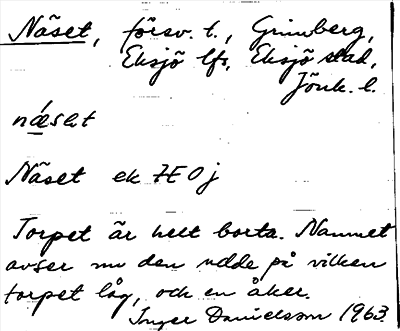 Näset, försv. t., Grimberg,
Eksjö lfs, Eksjö stad,
Jönk. l.
næ̀sat
Näset ek 7E0j
Torpet är helt borta. Namnet
avser nu den udde på vilken
torpet låg, och en åker.
Inger Danielsson 1963